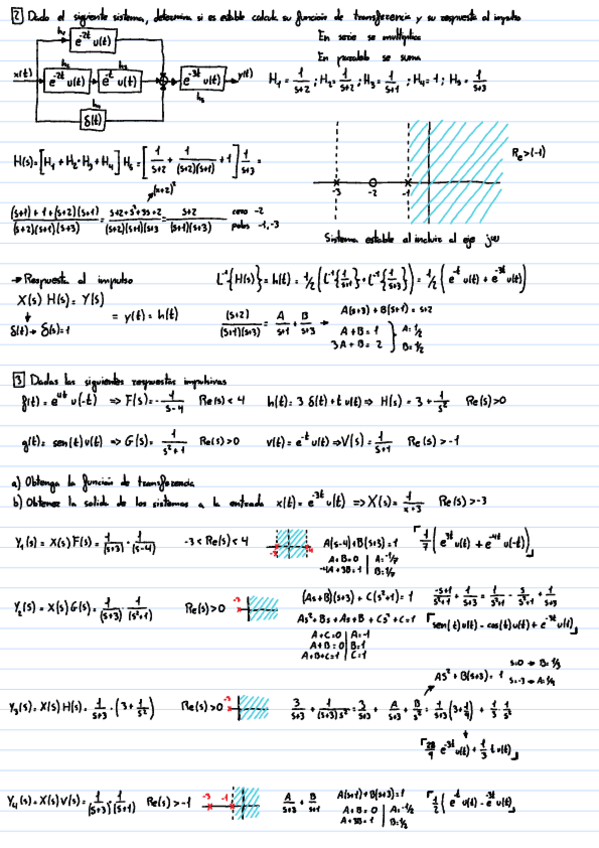 2 Dado el siguiente sistema, determina si es estable calcula su función de transferencia y su respuesta al impulso
En serie se multiplica
En paralelo se suma
h₁
e^-2t u(t)
x(t) e^-2t u(t) e^-t u(t) e^-3t u(t) y(t)
h₅
δ(t)
H₁ = 1/(s+2) ; H₂ = 1/(s+2) ; H₃ = 1/(s+1) ; H₄ = 1 ; H₅ = 1/(s+3)
H(s) = [H₁ + H₂·H₃ + H₄] H₅ = [1/(s+2) + 1/((s+2)(s+1)) + 1] 1/(s+3) =
Re > (-1)
-3 -2 -1
(s+2)²
((s+1) + 1 + (s+2)(s+1))/((s+2)(s+1)(s+3)) = (s+2+s²+3s+2)/((s+2)(s+1)(s+3)) = (s+2)/((s+1)(s+3)) cero -2 polos -1,-3
Sistema estable al incluir al eje jω
→ Respuesta al impulso
L⁻¹{H(s)} = h(t) = 1/2 (L⁻¹{1/(s+1)} + L⁻¹{1/(s+3)}) = 1/2 (e^-t u(t) + e^-3t u(t))
X(s) H(s) = Y(s)
= y(t) = h(t)
δ(t) → δ(s) = 1
(s+2)/((s+1)(s+3)) = A/(s+1) + B/(s+3) → A(s+3) + B(s+1) = s+2
A + B = 1
3A + B = 2
A = 1/2
B = 1/2
3 Dadas las siguientes respuestas impulsivas
f(t) = e^4t u(-t) ⇒ F(s) = -1/(s-4) Re(s) < 4 h(t) = 3 δ(t) + t u(t) ⇒ H(s) = 3 + 1/s² Re(s) > 0
g(t) = sen(t) u(t) ⇒ G(s) = 1/(s²+1) Re(s) > 0 v(t) = e^-t u(t) ⇒ V(s) = 1/(s+1) Re(s) > -1
a) Obtenga la función de transferencia
b) Obtener la salida de los sistemas a la entrada x(t) = e^-3t u(t) ⇒ X(s) = 1/(s+3) Re(s) > -3
Y₁(s) = X(s) F(s) = 1/(s+3) · 1/(s-4) -3 < Re(s) < 4 A(s-4) + B(s+3) = 1
A + B = 0 A = -1/7
-4A + 3B = 1 B = 1/7
Y₂(s) = X(s) G(s) = 1/(s+3) · 1/(s²+1) Re(s) > 0 -3 (As+B)(s+3) + C(s²+1) = 1
(-s+1)/(s²+1) + 1/(s+3) = 1/(s²+1) - s/(s²+1) + 1/(s+3)
As² + Bs + As + B + Cs² + C = 1
sen(t) u(t) - cos(t) u(t) + e^-3t u(t)
A + C = 0 A = -1
A + B = 0 B = 1
A + B + C = 1 C = 1
As² + B(s+3) = 1 s=0 → B = 1/3
Y₃(s) = X(s) H(s) = 1/(s+3) · (3 + 1/s²) Re(s) > 0 -3 3/(s+3) + 1/((s+3)s²) = 3/(s+3) + A/(s+3) + B/s² = 1/(s+3) (3 + 1/9) + 1/3 1/s²
28/9 e^-3t u(t) + 1/3 t u(t)
Y₄(s) = X(s) V(s) = 1/(s+3) · 1/(s+1) Re(s) > -1 -3 -1 A/(s+3) + B/(s+1) A(s+1) + B(s+3) = 1 1/2 (e^-t u(t) - e^-3t u(t))
A + B = 0 A = -1/2
A + 3B = 1 B = 1/2